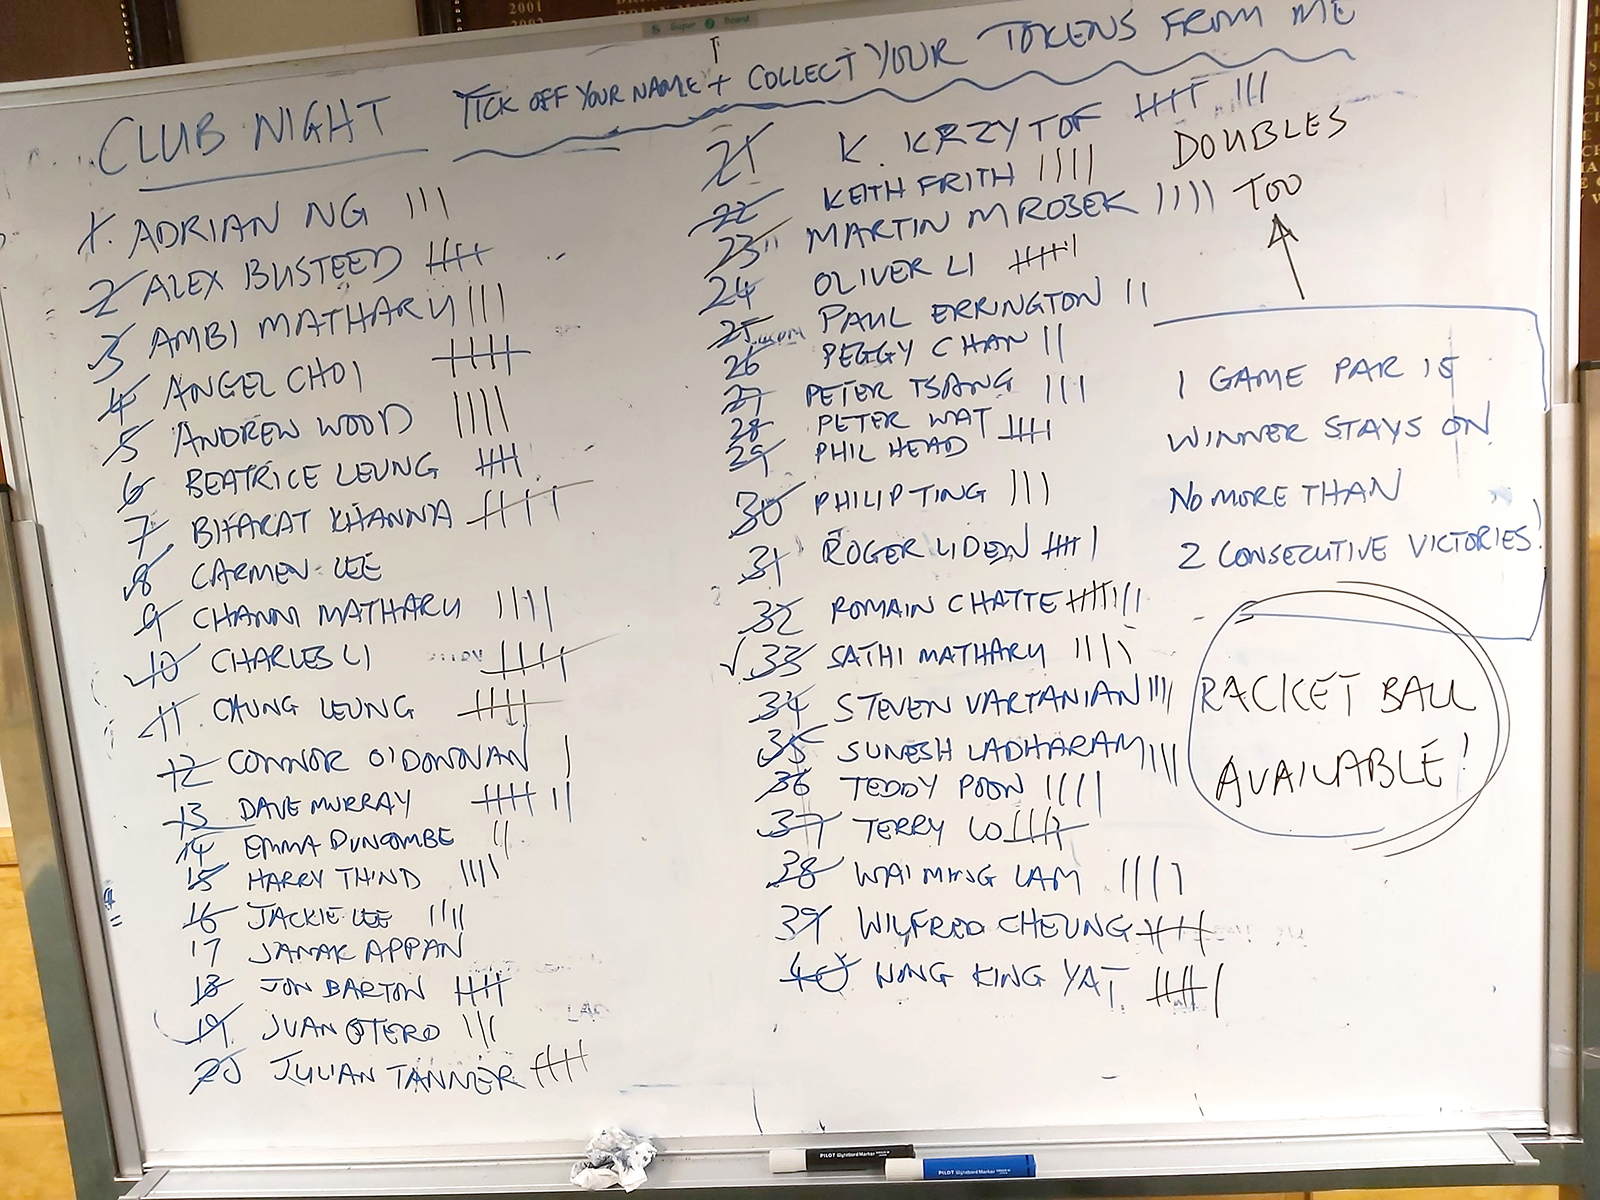 2001
2002
Super Board
CLUB NIGHT TICK OFF YOUR NAME + COLLECT YOUR TOKENS FROM ME
1. ADRIAN NG III
2 ALEX BUSTEED
3 AMBI MATHARU III
4 ANGEL CHOI
5 ANDREW WOOD IIII
6 BEATRICE LEUNG
7 BHARAT KHANNA
8 CARMEN LEE
9 CHANNI MATHARU IIII
10 CHARLES LI
11 CHUNG LEUNG
12 CONNOR O'DONOVAN I
13 DAVE MURRAY
14 EMMA DUNCOMBE II
15 HARRY THIND IIII
16 JACKIE LEE IIII
17 JANAK APPAN
18 JON BARTON
19 JUAN OTERO III
20 JULIAN TANNER
21 K. KRZYTOF
22 KEITH FRITH IIII
23 MARTIN MROBEK IIII
24 OLIVER LI
25 PAUL ERRINGTON II
26 PEGGY CHAN II
27 PETER TSANG III
28 PETER WAT
29 PHIL HEAD
30 PHILIP TING III
31 ROGER LIDEN
32 ROMAIN CHATTE
33 SATHI MATHARU IIII
34 STEVEN VARTANIAN IIII
35 SUNESH LADHARAM IIII
36 TEDDY POON IIII
37 TERRY LO
38 WAI MING LAM IIII
39 WILFRED CHEUNG
40 WONG KING YAT
DOUBLES
TOO
1 GAME PAR 15
WINNER STAYS ON
NO MORE THAN
2 CONSECUTIVE VICTORIES!
RACKET BALL
AVAILABLE!
PILOT Wyteboard Marker
PILOT Wyteboard Marker